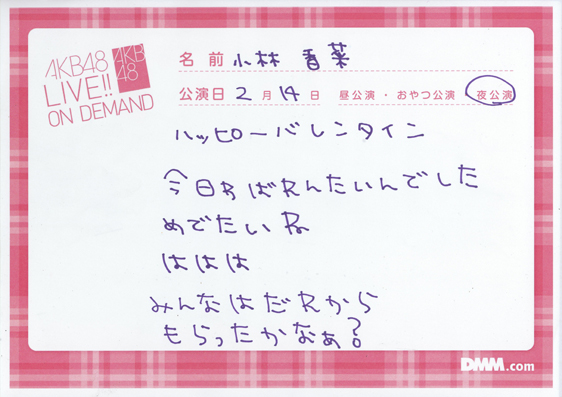 AKB48
LIVE!!
ON DEMAND
AKB
48
名前 小林 香菜
公演日 2月14日 昼公演・おやつ公演・夜公演
ハッピーバレンタイン
今日わばれんたいんでした
めでたいね
ははは
みんなはだれから
もらったかなぁ?
DMM.com